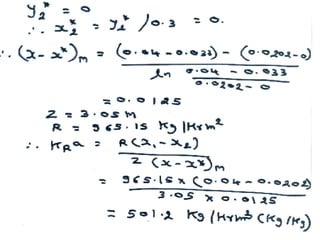 y₂* = 0
∴ x₂* = y₂* / 0.3 = 0.
∴ (x-x*)ₘ = (0.04-0.033) - (0.0202-0)
ln 0.04-0.033
0.0202-0
= 0.0125
Z = 3.05 M
R = 965.15 Kg/Hrm²
∴ K_R a = R(x₁-x₂)
Z (x-x*)ₘ
= 965.15 × (0.04-0.0202)
3.05 × 0.0125
= 501.2 Kg/Hrm³ (Kg/Kg)